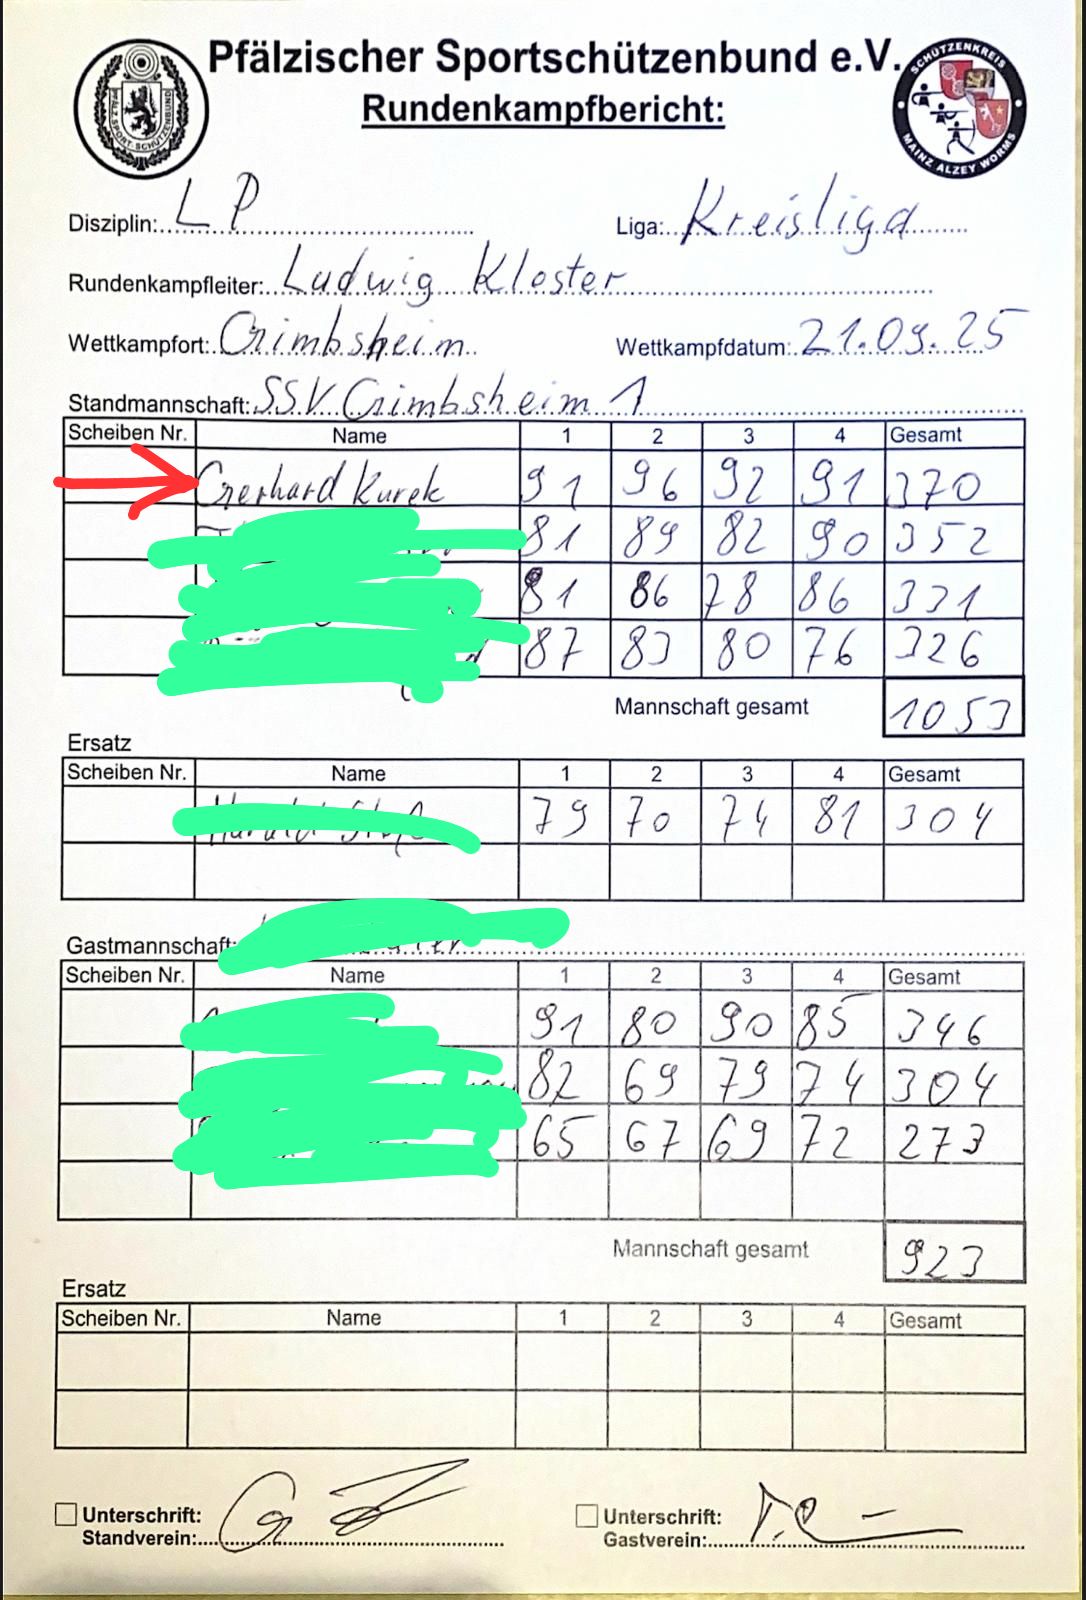 Pfälzischer Sportschützenbund e.V.
Rundenkampfbericht:
PFÄLZ. SPORTSCHÜTZENBUND
SCHÜTZENKREIS MAINZ ALZEY WORMS
Disziplin: LP Liga: Kreisliga
Rundenkampfleiter: Ludwig Kloster
Wettkampfort: Gimbsheim Wettkampfdatum: 21.09.25
Standmannschaft: SSV Gimbsheim 1
Scheiben Nr. Name 1 2 3 4 Gesamt
Gerhard Kurek 91 96 92 91 370
81 89 82 90 352
81 86 78 86 331
87 83 80 76 326
Mannschaft gesamt 1053
Ersatz
Scheiben Nr. Name 1 2 3 4 Gesamt
79 70 74 81 304
Gastmannschaft:
Scheiben Nr. Name 1 2 3 4 Gesamt
91 80 90 85 346
82 69 79 74 304
65 67 69 72 273
Mannschaft gesamt 923
Ersatz
Scheiben Nr. Name 1 2 3 4 Gesamt
Unterschrift: Unterschrift:
Standverein: Gastverein: